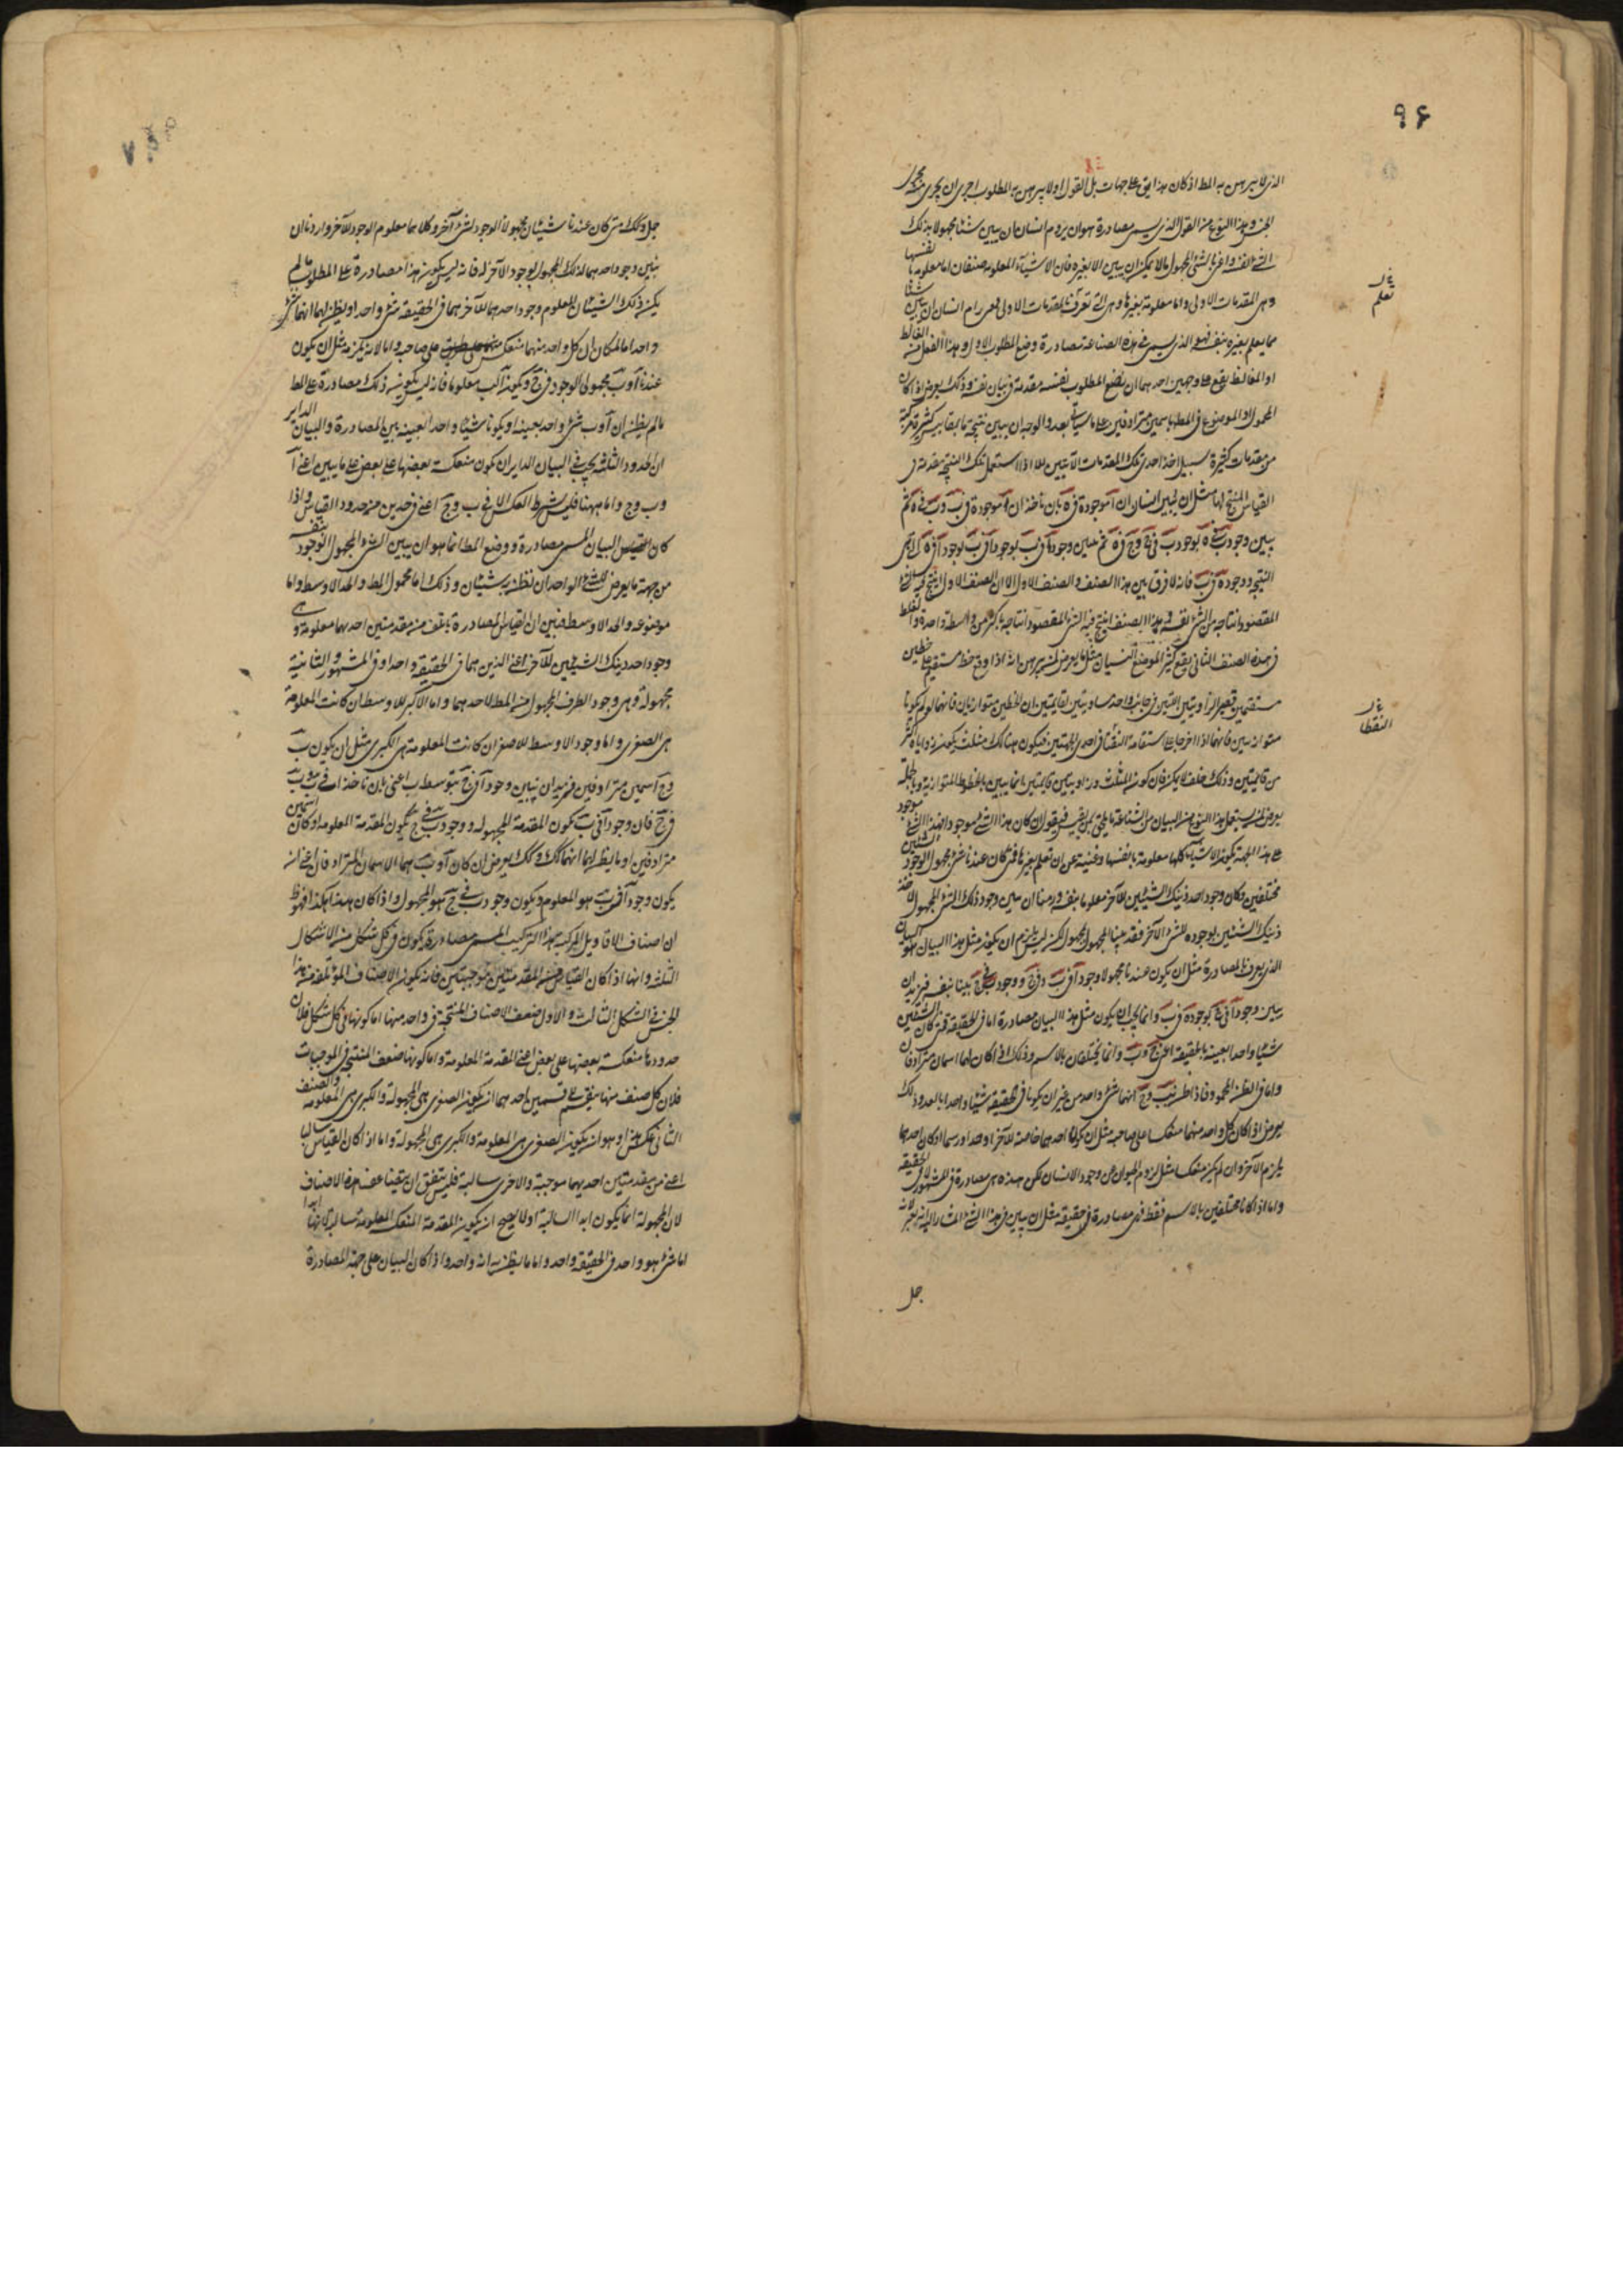 ٩۶
الذي لا يبرهن به المط اذ كان هذا يق على جهات بل القول اولا يبرهن به المطلوب احرى ان يجرى مجرى
الجنس وهذا النوع من القول الذي يسمى مصادرة هو ان يروم انسان ان يبين شيئا مجهولا بذلك
الشي نفسه واعني بالشي المجهول ما لا يمكن ان يبين الا بغيره فان الاشياء المعلومة صنفان اما معلومة بانفسها
وهي المقدمات الاولى واما معلومة بغيرها وهي التي تعرف بالمقدمات الاولى فمتى رام انسان ان يبين شيئا
مما يعلم بغيره بنفسه فهو الذي يسمى في هذه الصناعة مصادرة وضع المطلوب الاول وهذا الفعل من الغالط
او المغالط يقع على وجهين احدهما ان يضع المطلوب نفسه مقدمة في بيان نفسه وذلك يعرض اذا كان
المحمول او الموضوع في المط باسمين مترادفين على ما سياتي بعد والوجه ان يبين نتيجة ما بمقاييس كثيرة مركبة
من مقدمات كثيرة سبيل اخذ احدى تلك المقدمات الا تبين الا اذا استعمل تلك النتيجة مقدمة في
القياس المنتج لها مثل ان يبين انسان ان آ موجودة في ه بان ناخذ ان آ موجودة في ب وب في ه ثم
يبين وجود ب في ه بوجود ب في ج وج في ه ثم يبين وجود
النتيجة وجود ه في ب فانه لا فرق بين هذا الصنف والصنف الاول الا ان الصنف الاول انتج فيه الشي
المقصود انتاجه من الشي نفسه وهذا الصنف انتج فيه الشي المقصود انتاجه باكثر من واسطة واحدة والغلط
في هذه الصنف الثاني يقع كثيرا لموضع النسيان مثل ما يعرض لمن يبرهن انه اذا وقع خط مستقيم على خطين
مستقيمين فصير الزاويتين اللتين في جانب واحد مساويتين لقائمتين ان الخطين متوازيان فانهما لو لم يكونا
متوازيين فانهما اذا اخرجا على استقامة التقيا في احدى الجهتين فيكون هنالك مثلث يكون زواياه اكثر
من قائمتين وذلك خلف لا يمكن فان كون المثلث وزاويتين قائمتين انما يبين بالخطوط المتوازية وبالجملة
يعرض لمن يستعمل هذا النوع من البيان من الشناعة ما يلحق فيقول ان كان هذا الشي موجود فهذا الشي موجود
على هذه الجهة تكون الاشياء كلها معلومة بانفسها وغنية عن ان تعلم بغيرها فمتى كان عندنا شي مجهول الوجود لشيئين
مختلفين وكان وجود احد ذينك الشيئين للآخر معلوما بنفسه ورمنا ان نبين وجود ذلك الشي المجهول لاحد
ذينك الشيئين لوجوده للشي الآخر فقد بينا المجهول بالمجهول لكن ليس يلزم ان يكون مثل هذا البيان هو البيان
الذي يعرف المصادرة مثل ان يكون عندنا مجهولا وجود آ في ب وفي ج ووجود ب في ج بينا بنفسه فنريد ان
يبين وجود آ في ج بوجوده في ب وانما يجب ان يكون مثل هذا البيان مصادرة اما في الحقيقة فمتى كان الشيئين
شيئا واحدا بعينه بالحقيقة اعني ج وب وانما يختلفان بالاسم وذلك اذا كان لهما اسمان مترادفان
واما في الظن المحمود فاذا ظن بب وج انهما شي واحد من غير ان يكونا في الحقيقة شيئا واحدا بالعدد وذلك
يعرض اذا كان كل واحد منهما منعكسا على صاحبه مثل ان يكون احدهما خاصة للآخر او حدا او رسما او كان احدهما
يلزم الآخر وان لم يكن منعكسا مثل لزوم الحيوان عن وجود الانسان لكن هذه هي مصادرة في المشهور لا في الحقيقة
واما اذا كانا مختلفين بالاسم فقط فهي مصادرة في حقيقة مثل ان يبين في هذا الشي المشار اليه انه بعير لانه
جل
تعلم
النقطا
جمل وكذلك متى كان عندنا شيئان مجهولا الوجود لشي آخر وكلاهما معلوم الوجود للآخر واردنا ان
نبين وجود احدهما لذلك المجهول بوجود الآخر له فانه ليس يكون هذا مصادرة على المطلوب ما لم
يكن ذلك الشيئان المعلوم وجود احدهما للآخر هما في الحقيقة شي واحد او يظن بهما انهما شي
واحد اما لمكان ان كل واحد منهما منعكس على صاحبه واما لانه يلزمه مثل ان يكون
عندنا آ وب مجهولي الوجود في ج ويكون آ لب معلوما فانه ليس يكون ذلك مصادرة على المط
ما لم يظن ان آ وب شي واحد بعينه او يكونا شيئا واحدا بعينه بين المصادرة والبيان الداير
ان الحدود الثلثة يجب في البيان الداير ان يكون منعكسة بعضها على بعض على ما يبين اعني آ
وب وج واما ههنا فليس يشترط العكس الا في ب وج اعني في حدين من حدود القياس واذا
كان البيان المسمى مصادرة ووضع المط انما هو ان يبين الشي المجهول الوجود بنفسه
من جهة ما يعرض للشي الواحد ان نظن به شيئان وذلك اما محمول المط والحد الاوسط واما
موضوعه والحد الاوسط فبين ان القياس المصادرة ياتلف من مقدمتين احدهما معلومة وهي
وجود احد ذينك الشيئين للآخر اعني الذين هما في الحقيقة واحد او في المشهور والثانية
مجهولة وهي وجود الطرف المجهول من المط لاحدهما واما الاكبر للاوسط ان كانت المعلومة
هي الصغرى واما وجود الاوسط للاصغر ان كانت المعلومة هي الكبرى مثل ان يكون ب
وج اسمين مترادفين فنريد ان نبين وجود آ في ج بتوسط ب اعني بان ناخذ آ في ب وب
في ج فان وجود آ في ب تكون المقدمة المجهولة ووجود ب في ج تكون المقدمة المعلومة او كان اسمين
مترادفين او ما يظن بهما انهما كذلك وكذلك يعرض ان كان آ وب هما الاسمان المترادفان اعني انه
يكون وجود آ في ب هو المعلوم ويكون وجود ب في ج هو المجهول واذا كان هذا هكذا فهو ظ
ان اصناف الاقاويل المركبة هذا التركيب المسمى مصادرة تكون في كل شكل من الاشكال
الثلثة وانها اذا كان القياس من المقدمتين موجبتين فانه يكون الاصناف المؤتلفة من هذا
الجنس في الشكل الثالث والاول ضعف الاصناف المنتجة في واحد منها اما كونها في كل شكل فلان
حدودها منعكسة بعضها على بعض اعني المقدمة المعلومة واما كونها ضعف المنتج في الموجبات
فلان كل صنف منها ينقسم على قسمين احدهما ان يكون الصغرى هي المجهولة والكبرى هي المعلومة والصنف
الثاني عكس هذا وهو ان يكون الصغرى هي المعلومة والكبرى هي المجهولة واما اذا كان القياس سالبا
اعني من مقدمتين احديهما موجبة والاخرى سالبة فليس يتفق ان يبقينا ضعف هذه الاصناف
لان المجهولة انما يكون ابدا السالبة اولا يصح ان يكون المقدمة المنعكسة المعلومة سالبة لانها ابدا
اما شي هو واحد في الحقيقة واحد واما ما يظن به انه واحد واذا كان البيان على جهة المصادرة